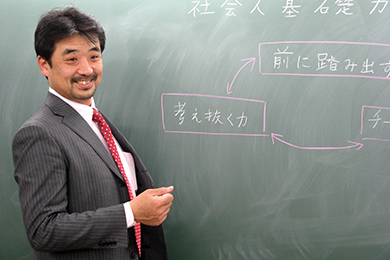 社会人基礎力
前に踏み出す
考え抜く力
チー